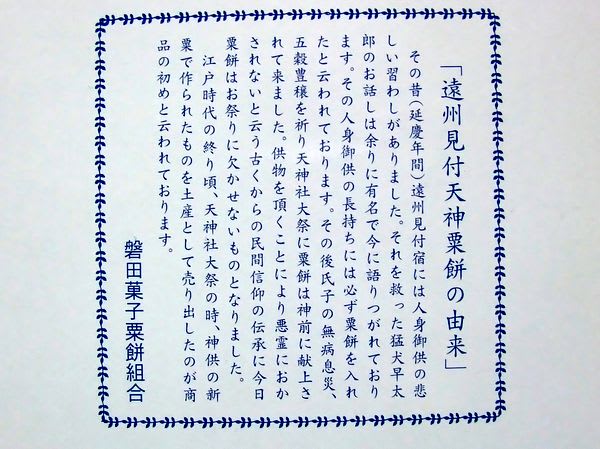 「遠州見付天神粟餅の由来」
その昔(延慶年間)遠州見付宿には人身御供の悲
しい習わしがありました。それを救った猛犬早太
郎のお話しは余りに有名で今に語りつがれており
ます。その人身御供の長持ちには必ず粟餅を入れ
たと云われております。その後氏子の無病息災、
五穀豊穣を祈り天神社大祭に粟餅は神前に献上さ
れて来ました。供物を頂くことにより悪霊におか
されないと云う古くからの民間信仰の伝承に今日
粟餅はお祭りに欠かせないものとなりました。
江戸時代の終り頃、天神社大祭の時、神供の新
粟で作られたものを土産として売り出したのが商
品の初めと云われております。
磐田菓子粟餅組合